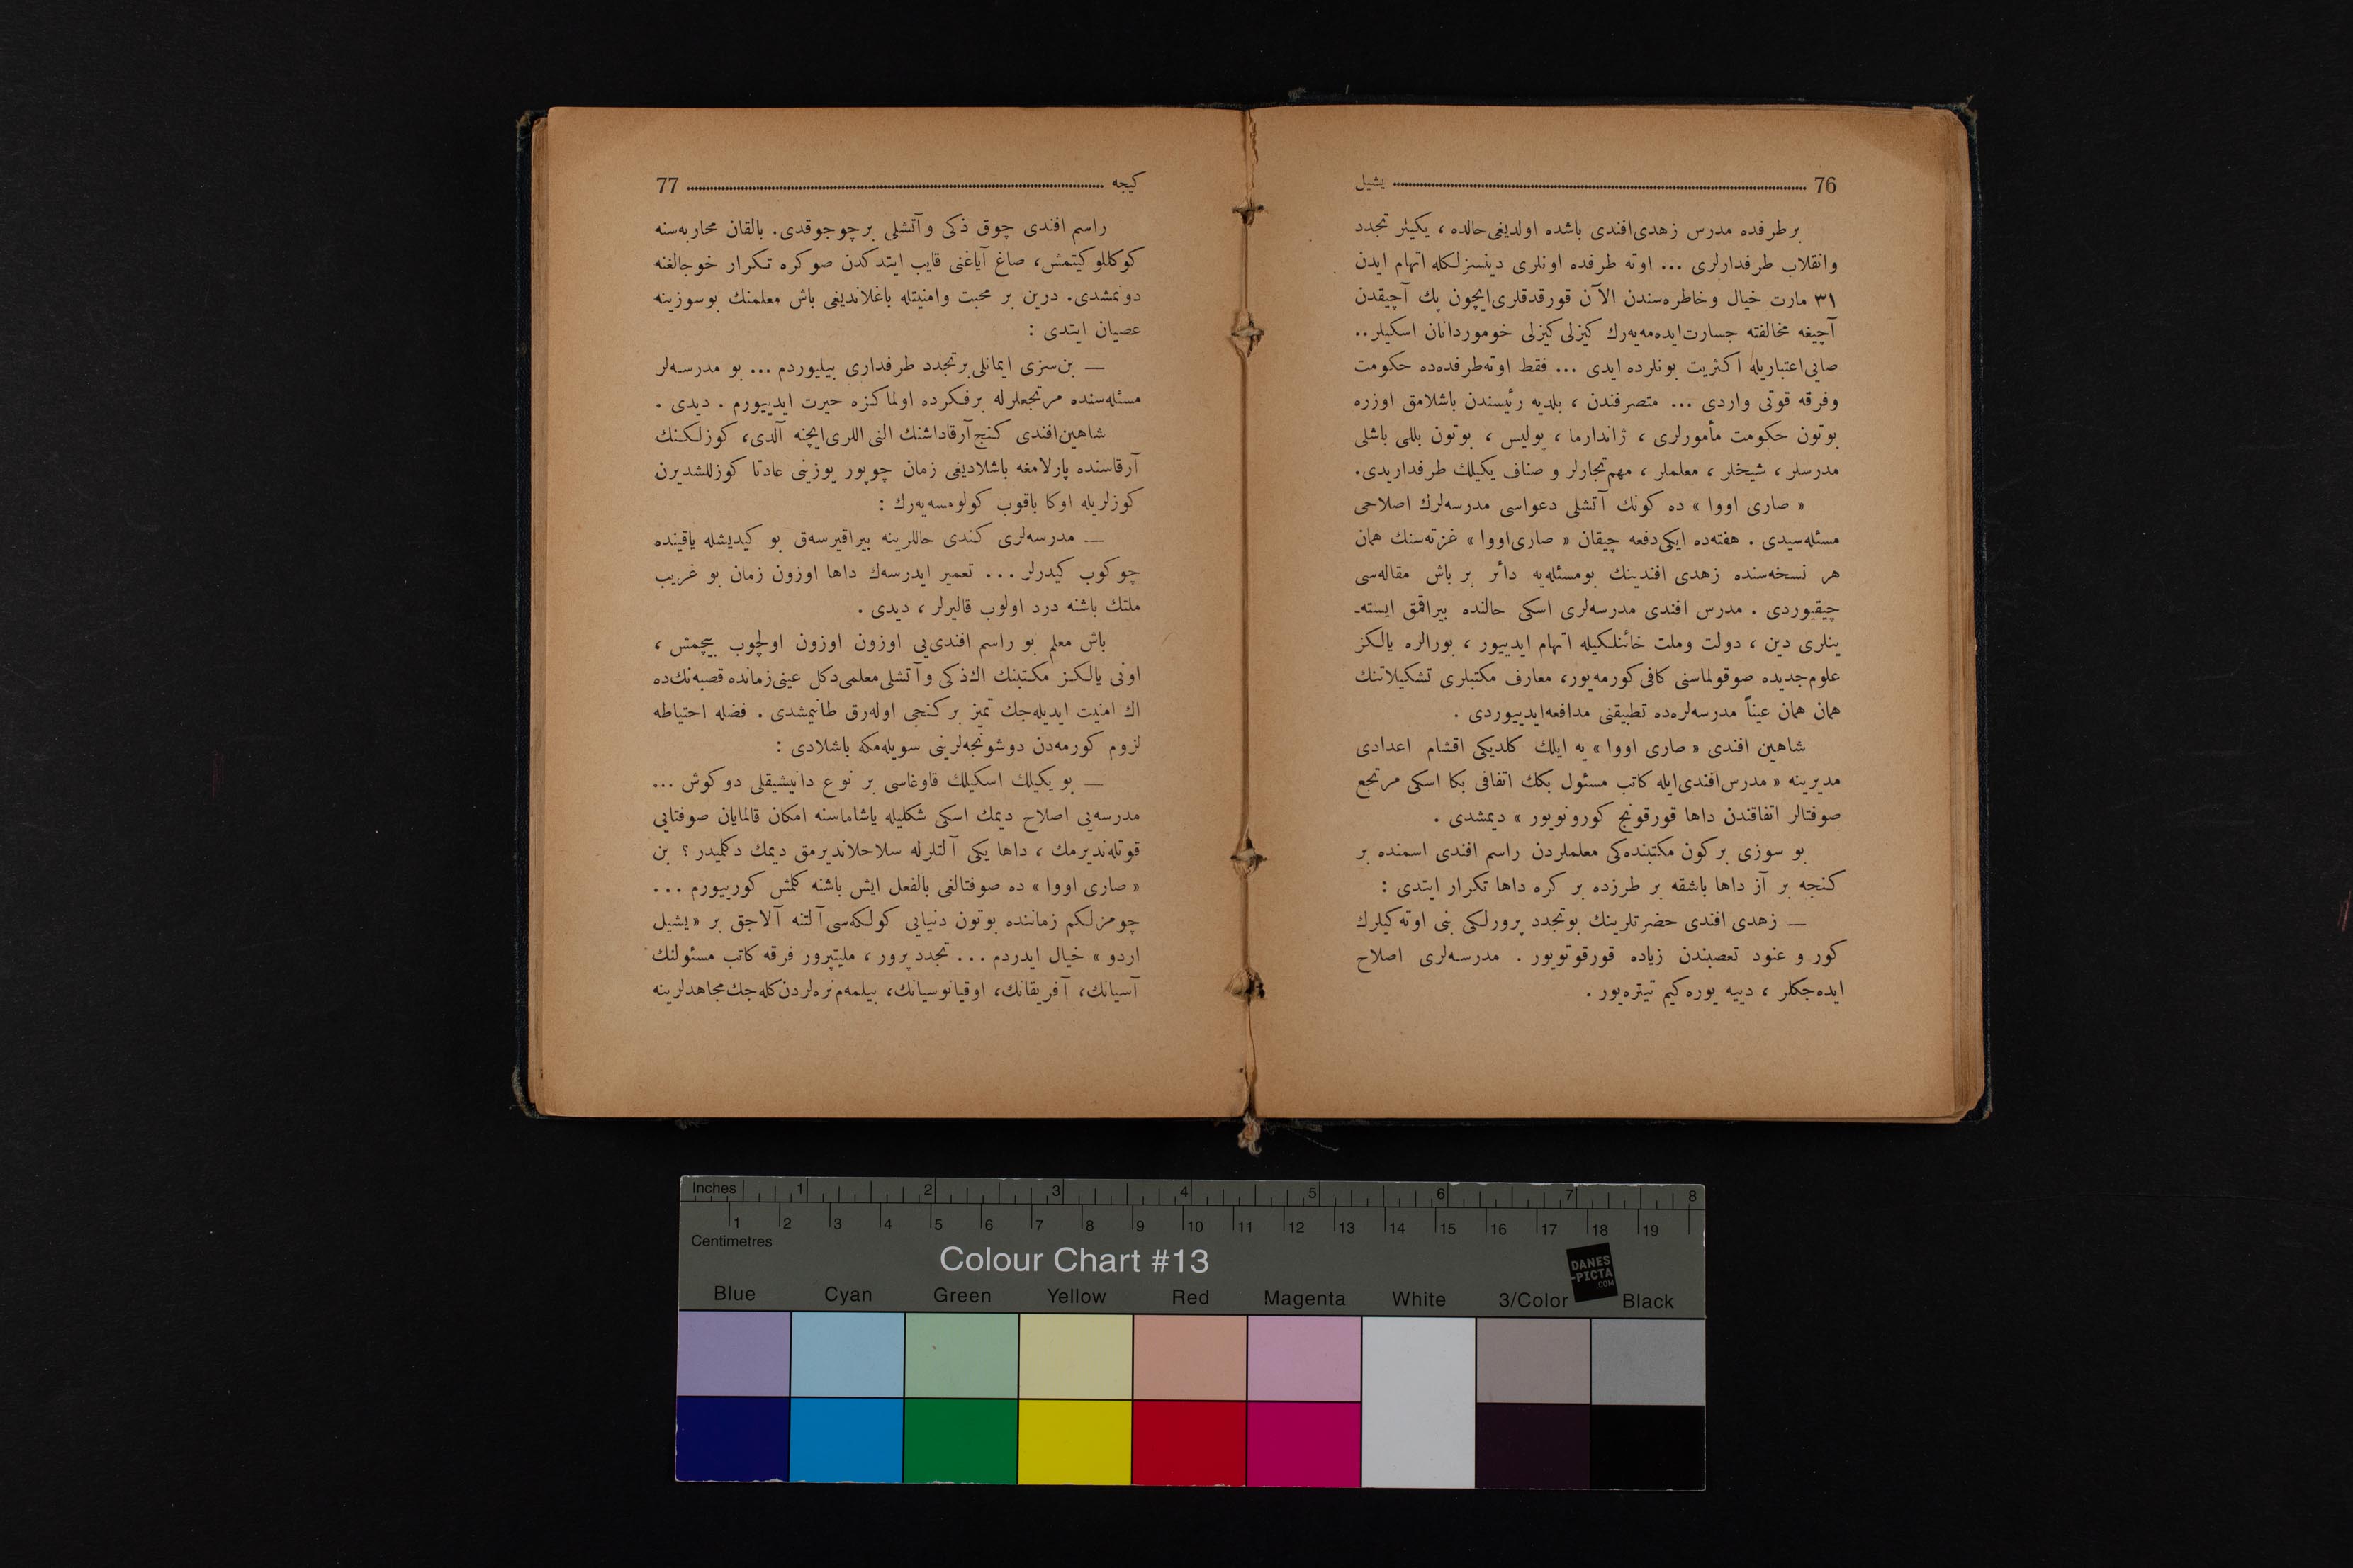 76 يشيل
برطرفده مدرس زهدی‌افندی باشده اولديغی‌حالده ، يكيلر تجدد
وانقلاب طرفدارلری ... اوته طرفده اونلری دينسزلكله اتهام ايدن
٣١ مارت خيال وخاطره‌سندن الآن قورقدقلری‌ايچون پك آچيقدن
آچيغه مخالفته جسارت‌ايده‌مه‌يه‌رك كيزلی كيزلی خوموردانان اسكيلر ..
صايی‌اعتباريله اكثريت بونلرده ايدی ... فقط اوته‌طرفده‌ده حكومت
وفرقه قوتی واردی ... متصرفندن ، بلديه رئيسندن باشلامق اوزره
بوتون حكومت مأمورلری ، ژاندارما ، پوليس ، بوتون بللی باشلی
مدرسلر ، شيخلر ، معلملر ، مهم‌تجارلر و صناف يكيلك طرفداريدی.
« صاری اووا » ده كونك آتشلی دعواسی مدرسه‌لرك اصلاحی
مسئله‌سيدی . هفته‌ده ايكی‌دفعه چيقان « صاری‌اووا » غزته‌سنك همان
هر نسخه‌سنده زهدی افندينك بومسئله‌يه دائر بر باش مقاله‌سی
چيقيوردی . مدرس افندی مدرسه‌لری اسكی حالنده بيراقمق ايسته‌ـ
ينلری دين ، دولت وملت خائنلكيله اتهام ايدييور ، بورالره يالكز
علوم‌جديده صوقولماسنی كافی‌كورمه‌يور، معارف مكتبلری تشكيلاتنك
همان همان عيناً مدرسه‌لره‌ده تطبيقنی مدافعه‌ايدييوردی .
شاهين افندی « صاری اووا » يه ايلك كلديكی اقشام اعدادی
مديرينه « مدرس‌افندی‌ايله كاتب مسئول بكك اتفاقی بكا اسكی مرتجع
صوفتالر اتفاقندن داها قورقونج كورونويور » ديمشدی .
بو سوزی بركون مكتبنده‌كی معلملردن راسم افندی اسمنده بر
كنجه بر آز داها باشقه بر طرزده بر كره داها تكرار ايتدی :
— زهدی افندی حضرتلرينك بوتجدد پرورلكی بنی اوته‌كيلرك
كور و عنود تعصبندن زياده قورقوتويور . مدرسه‌لری اصلاح
ايده‌جكلر ، دييه يوره‌كيم تيتره‌يور .
كيجه 77
راسم افندی چوق ذكی وآتشلی برچوجوقدی. بالقان محاربه‌سنه
كوكللوكيتمش، صاغ آياغنی قايب ايتدكدن صوكره تكرار خوجالغنه
دونمشدی. درين بر محبت وامنيتله باغلانديغی باش معلمنك بوسوزينه
عصيان ايتدی :
— بن‌سزی ايمانلی‌برتجدد طرفداری بيليوردم ... بو مدرسه‌لر
مسئله‌سنده مرتجعلرله برفكرده اولماكزه حيرت ايدييورم . ديدی .
شاهين‌افندی كنج‌آرقاداشنك النی اللری‌ايچنه آلدی، كوزلكنك
آرقاسنده پارلامغه باشلاديغی زمان چوپور يوزينی عادتا كوزللشديرن
كوزلريله اوكا باقوب كولومسه‌يه‌رك :
— مدرسه‌لری كندی حاللرينه بيراقيرسه‌ق بو كيديشله ياقينده
چوكوب كيدرلر ... تعمير ايدرسه‌ك داها اوزون زمان بو غريب
ملتك باشنه درد اولوب قاليرلر ، ديدی .
باش معلم بو راسم افندی‌يی اوزون اوزون اولچوب بيچمش ،
اونی يالكز مكتبنك اك‌ذكی وآتشلی‌معلمی‌دكل عينی‌زمانده قصبه‌نك‌ده
اك امنيت ايديله‌جك تميز بركنجی اوله‌رق طانيمشدی . فضله احتياطه
لزوم كورمه‌دن دوشونجه‌لرينی سويله‌مكه باشلادی :
— بو يكيلك اسكيلك قاوغاسی بر نوع دانيشيقلی دوكوش ...
مدرسه‌يی اصلاح ديمك اسكی شكليله ياشاماسنه امكان قالمايان صوفتايی
قوتله‌نديرمك ، داها يكی آلتلرله سلاحلانديرمق ديمك دكلميدر ؟ بن
« صاری اووا » ده صوفتالغی بالفعل ايش باشنه كلمش كورييورم ...
چومزلكم زماننده بوتون دنيايی كولكه‌سی‌آلتنه آلاجق بر « يشيل
اردو » خيال ايدردم ... تجددپرور ، مليتپرور فرقه كاتب مسئولنك
آسيانك، آفريقانك، اوقيانوسيانك، بيلمه‌م‌نره‌لردن‌كله‌جك‌مجاهدلرينه
Inches 1 2 3 4 5 6 7 8
1 2 3 4 5 6 7 8 9 10 11 12 13 14 15 16 17 18 19
Centimetres
Colour Chart #13
DANES
-PICTA
.COM
Blue Cyan Green Yellow Red Magenta White 3/Color Black